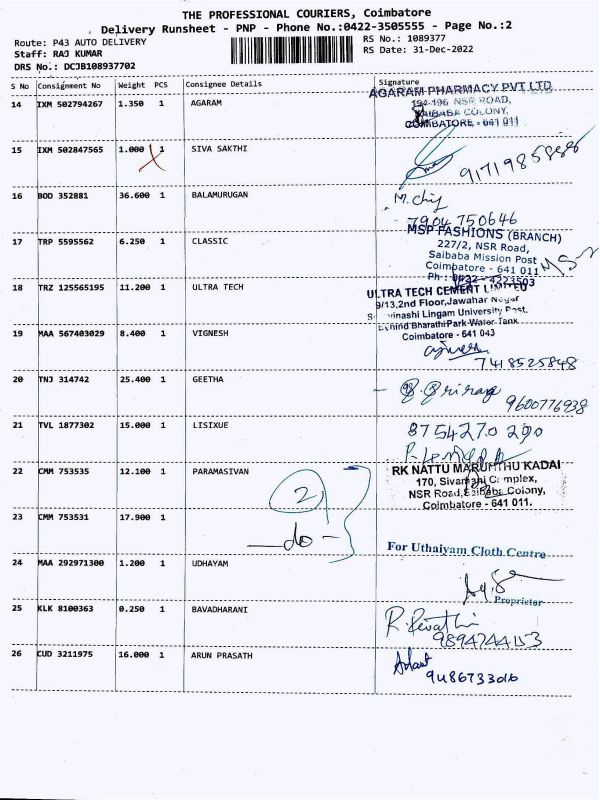 THE PROFESSIONAL COURIERS, Coimbatore
Delivery Runsheet - PNP - Phone No.:0422-3505555 - Page No.:2
Route: P43 AUTO DELIVERY
RS No.: 1089377
Staff: RAJ KUMAR
RS Date: 31-Dec-2022
DRS No.: DCJB108937702
S No Consignment No Weight PCS Consignee Details Signature
14 IXM 502794267 1.350 1 AGARAM
AGARAM PHARMACY PVT LTD
194-196 NSR ROAD,
SAIBABA COLONY,
COIMBATORE - 641 011
15 IXM 502847565 1.000 1 SIVA SAKTHI
16 BOD 352881 36.600 1 BALAMURUGAN
7904 750646
17 TRP 5595562 6.250 1 CLASSIC
MSP FASHIONS (BRANCH)
227/2, NSR Road,
Saibaba Mission Post
Coimbatore - 641 011
Ph : 0422 - 4223503
18 TRZ 125565195 11.200 1 ULTRA TECH
ULTRA TECH CEMENT LIMITED
9/13,2nd Floor,Jawahar Nagar
Lingam University Post,
Behind BharathiPark Water Tank
Coimbatore - 641 043
19 MAA 567403029 8.400 1 VIGNESH
7418525848
20 TNJ 314742 25.400 1 GEETHA
9600776938
21 TVL 1877302 15.000 1 LISIXUE
8754270290
22 CMM 753535 12.100 1 PARAMASIVAN
2
RK NATTU MARUNTHU KADAI
170, Sivamani Complex,
NSR Road, Saibaba Colony,
Coimbatore - 641 011.
23 CMM 753531 17.900 1
do
24 MAA 292971300 1.200 1 UDHAYAM
For Uthaiyam Cloth Centre
Proprietor
25 KLK 8100363 0.250 1 BAVADHARANI
R. Revathi
9894744153
26 CUD 3211975 16.000 1 ARUN PRASATH
9486733016